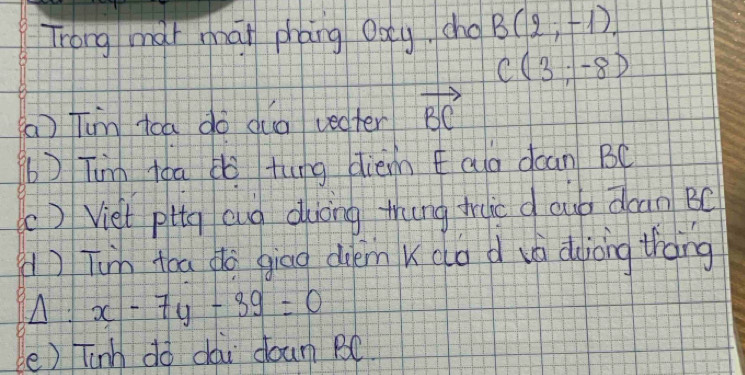 Trong mặt mặt phẳng Oxy. cho B(2;-1).
C(3;-8)
a) Tìm tọa độ của vecter \overrightarrow{BC}
b) Tìm tọa độ trung điểm E của đoạn BC
c) Viết pttq của đường trung trực d của đoạn BC
d) Tìm tọa độ giao điểm K của d và đường thẳng
Δ: x - 7y - 39 = 0
e) Tính độ dài đoạn BC.